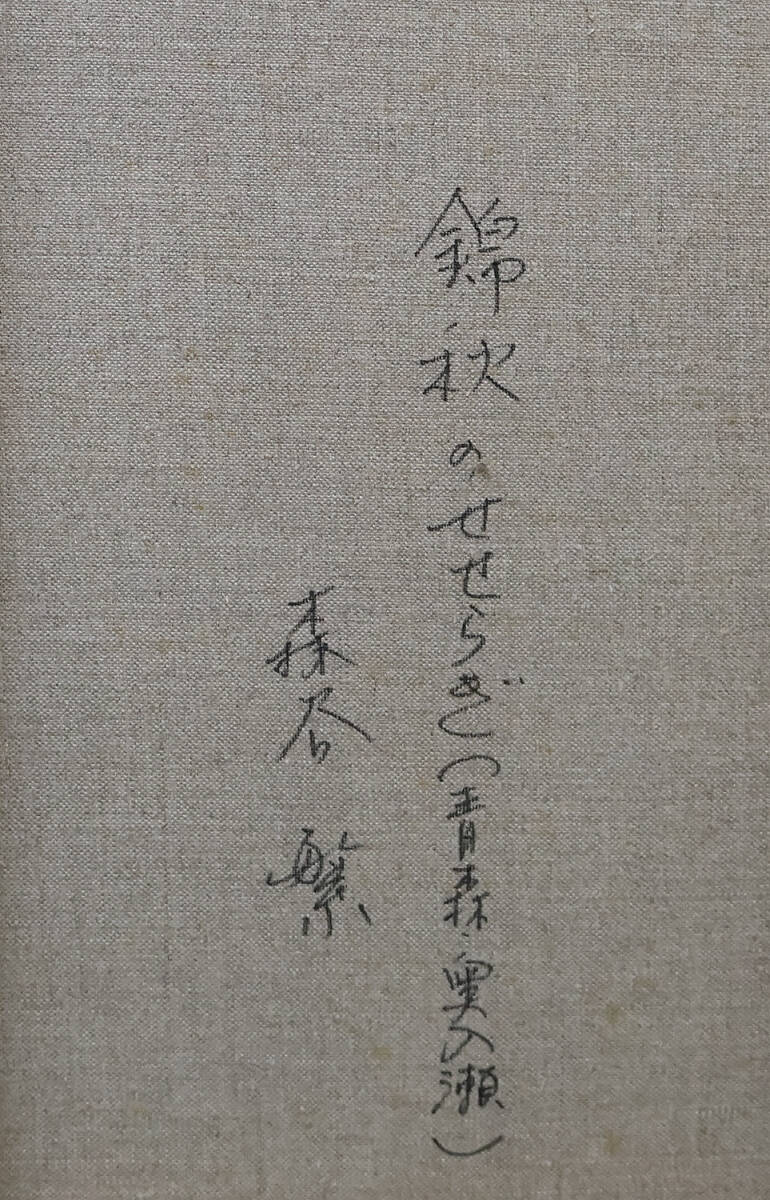 錦秋のせせらぎ(青森・奥入瀬)
森谷 繁